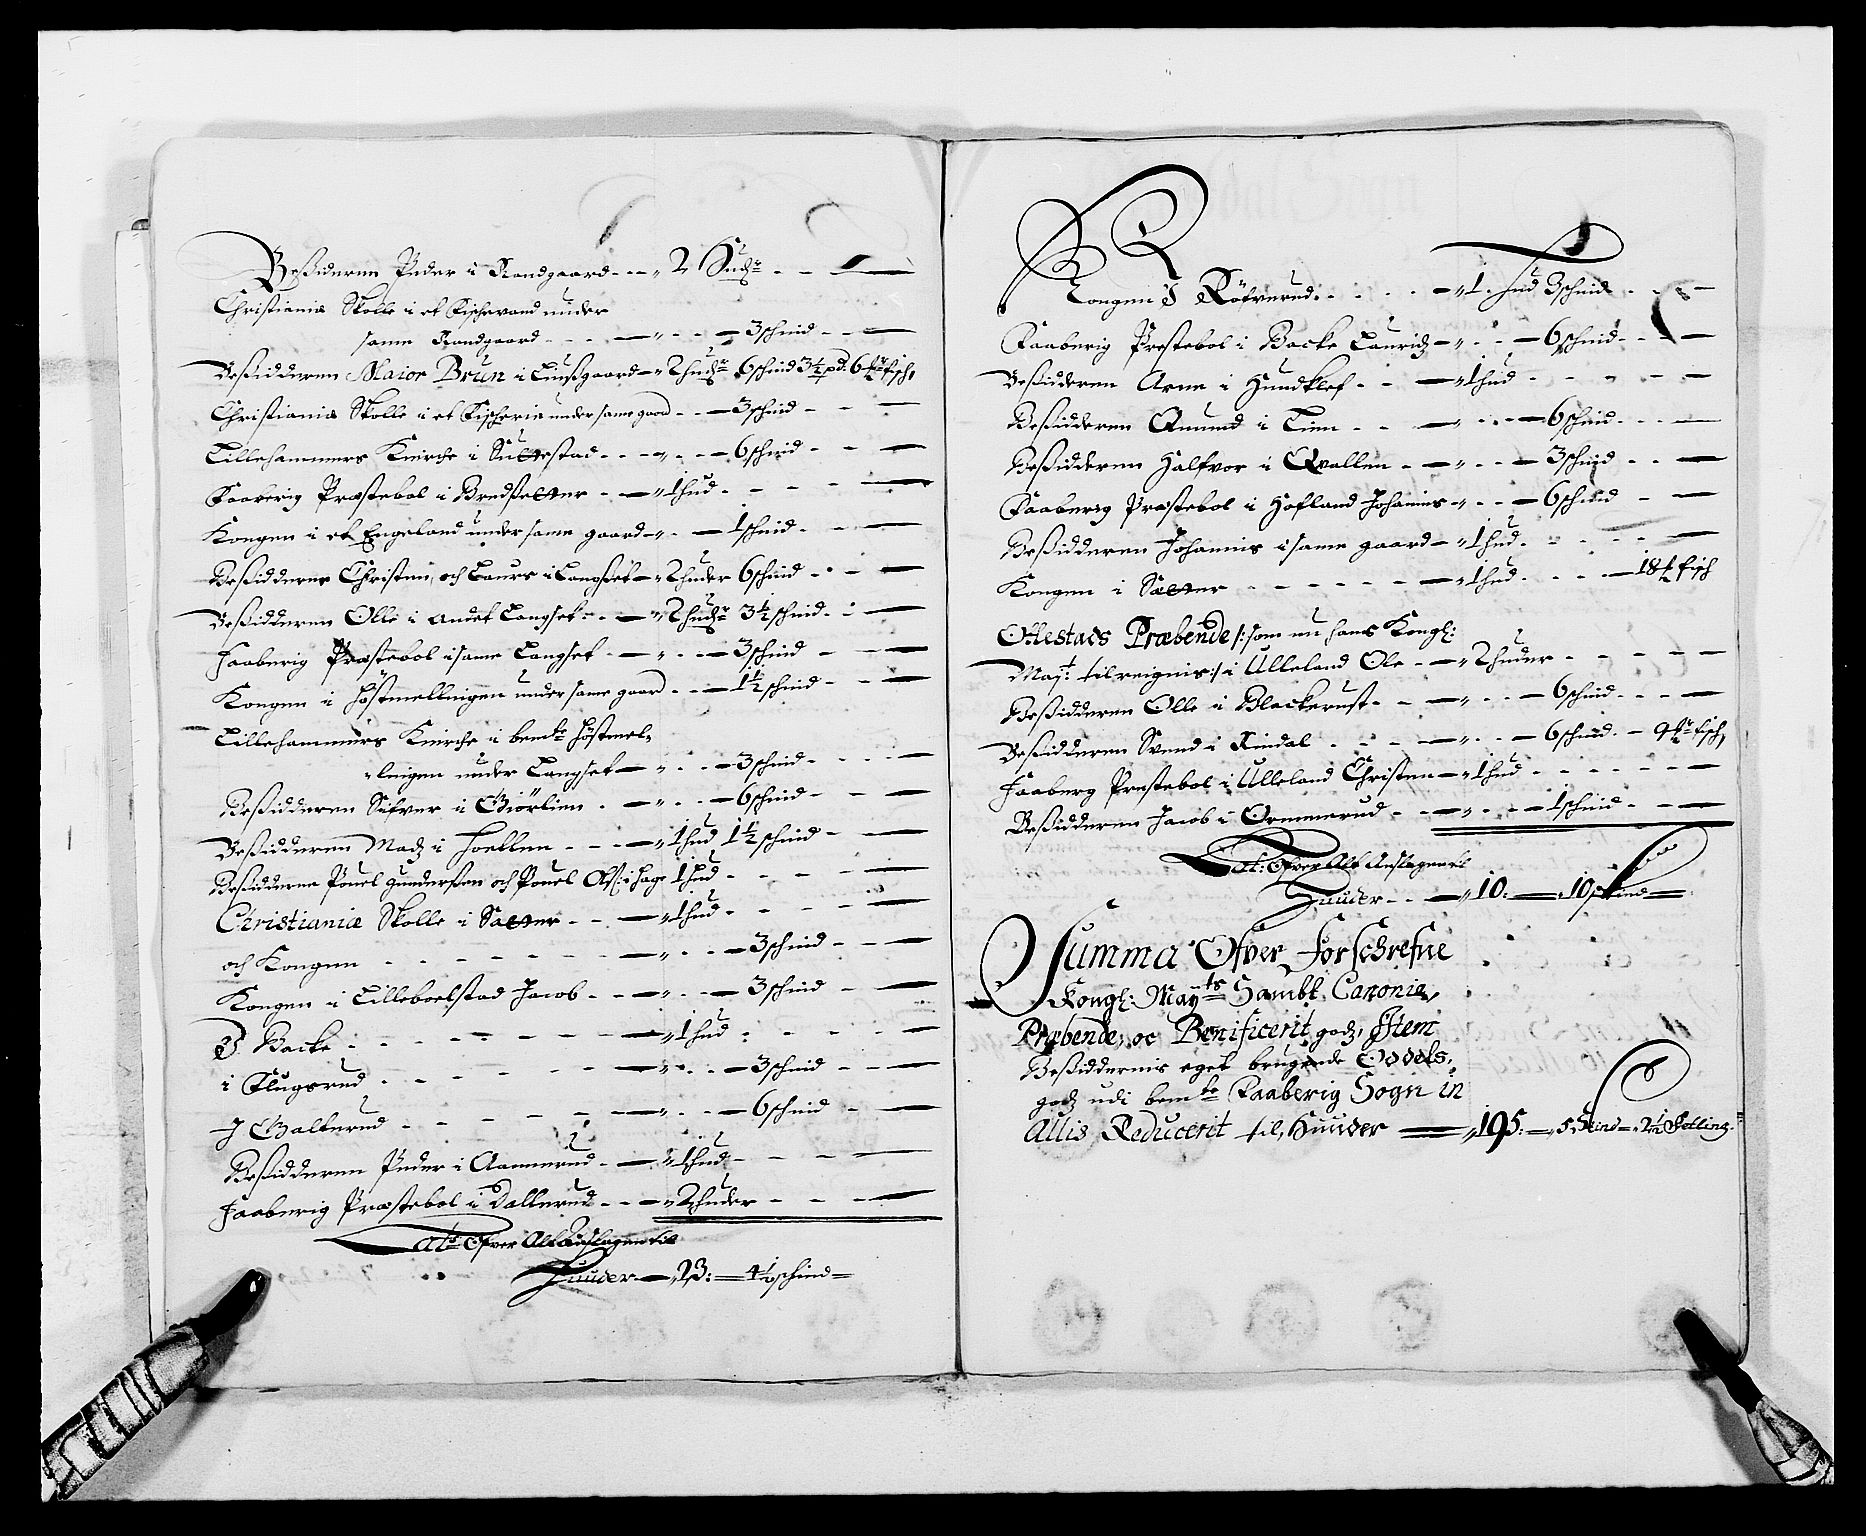 Beßideren Peder i Randgaard - - „ 2 Hudr - - —
Christiania Skolle i et Fischevand under
same Randgaard - - - „ - - 3 schind - - —
Beßidderen Maior Brun i Liußgaard „ 2 hudr 6 schind 3½ pd: 6 fisch,
Christiania Skolle i et Fischerie under same gaard - - 3 schind - - —
Lillehammers Kirche i Suttestad - - - „ - - 6 schind - - —
Faaberig Præstebol i Bredsetter - - „ 1 hud - - - —
Kongen i et Engeland under same gaard - „ - 1 schind - - —
Beßidderne Christen, och Laurs i Langset „ 2 huder 6 schind - - —
Beßidderen Olle i andet Langset - - „ 2 hudr 3½ schind - —
Faaberig Præstebol i same Langset - - „ - - 3 schind - - —
Kongen i Höstmellingen under same gaard - - 1½ schind - - —
Lillehammers Kirche i bemte Höstmel-
-lingen under Langset „ - - 3 schind - - - —
Beßidderen Sifver i Giörlien - - „ - - 6 schind - - —
Beßidderen Madz i Hoellen - - - „ 1 hud 1½ schind - —
Beßidderne Pouel Gunderßen och Pouel Olß: i Hage 1 Hud - - - —
Christianiæ Skolle i Sætter - - „ 1 hud - - - —
och Kongen - - - - - „ - - 3 schind - - —
Kongen i Lilleboelstad Jacob - - „ - - 3 schind - - —
I Backe - - - - - „ 1 hud - - - —
i Flugsrud - - - - - „ - - 3 schind - - —
I Balterud - - - - - „ - - 6 schind - - —
Beßidderen Peder i Aammerud - - „ 1 hud - - - —
Faaberig Præstebol i Dallerud - - „ 2 huder - - - —
Lats Ofver Alt Anslagen til
Huuder — „ 23: = 4½ schind =
Kongen I Röfverud - - - - „ 1 hud 3 schind - - —
Faaberig Præstebol i Backe Lauridz - „ - - 6 schind - - —
Beßidderen Arne i Hundklef - - „ 1 hud - - - —
Beßidderen Amund i Lien - - „ - - 6 schind - - —
Beßidderen Halfvor i Qvallen - - „ - - 3 schind - - —
Faaberig Præstebol i Hofland Johannis „ - - 6 schind - —
Beßidderen Johannis i same gaard „ 1 hud - - - —
Kongen i Sætter - - - - „ 1 hud - - - 18½ fisch
Ottestads Præbende /: som nu hans Kongl:
Mayt: tilreignis :/ i Ulleland Ole - - „ 2 huder - - - —
Beßidderen Olle i Blackerust - - „ - - 6 schind - - —
Beßidderen Svend i Rindal - - - „ - - 6 schind - 9 fisch,
Faaberg Præstebol i Ulleland Christen „ 1 hud - - - —
Beßidderen Jacob i Ormmerud - - „ - - 1 schind - - —
Lat: Ofver Alt Anslagen til
Huuder - - „ 10: = „ 10 schind =
Summa Ofver Forschrefne
Kongl: Mayts Sambt, Canonie,
Præbende, oc Benificerit godz, Item
Beßiddernis eget brugende Odels,
godz udi bemte Faaberig Sogn in
Allis Reducerit til, Huuder = „ 195: = „ 5 Skind = „ 2½ Skelling: